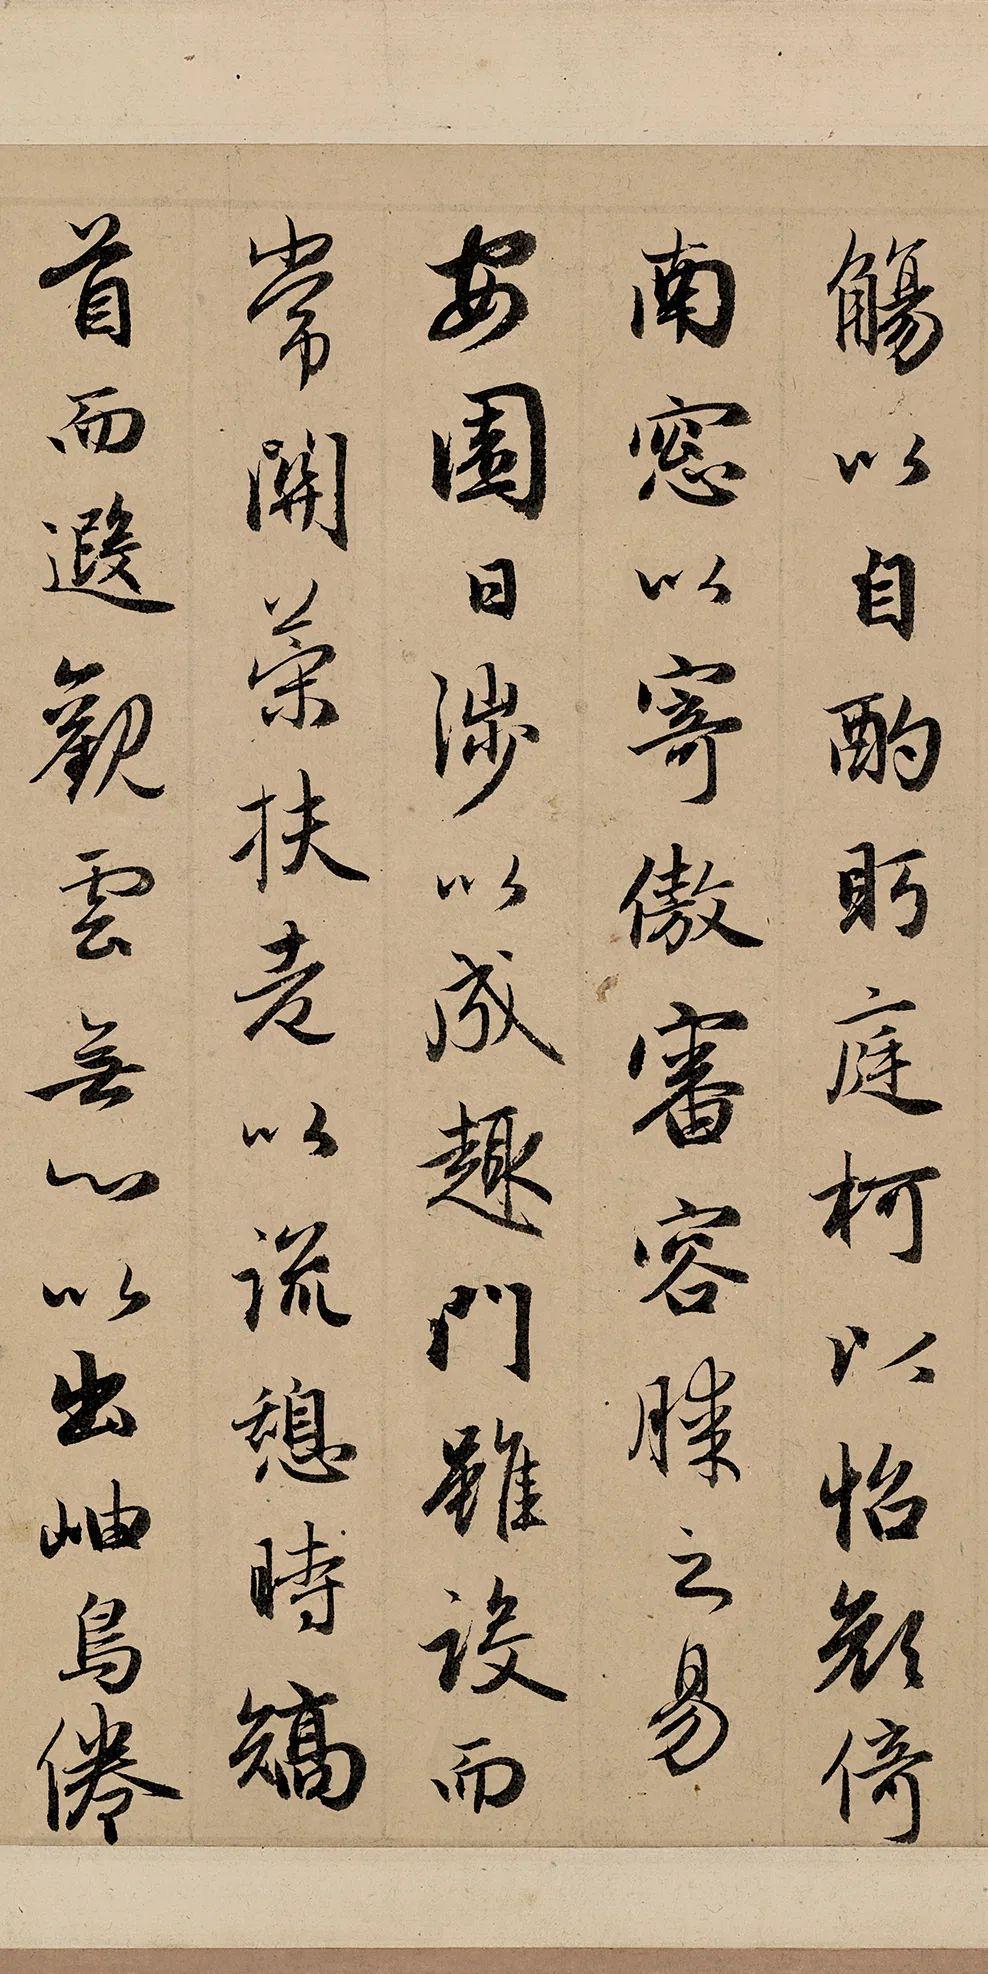 觴以自酌眄庭柯以怡顔倚
南窓以寄傲審容膝之易
安園日涉以成趣門雖設而
常開榮扶老以流憩時矯
首而遐觀雲無心以出岫鳥倦